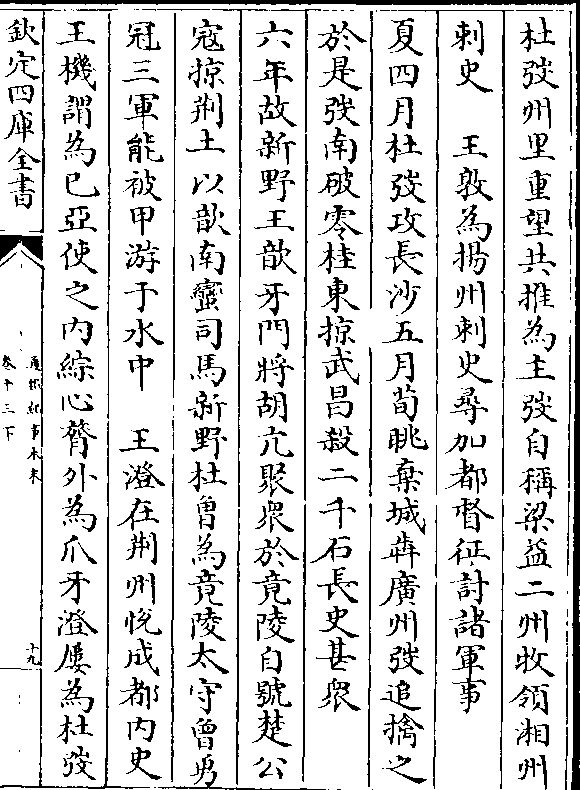 杜弢州里重望共推為主弢自稱梁益二州牧領湘州
刺史　王敦為揚州刺史尋加都督征討諸軍事
夏四月杜弢攻長沙五月荀眺棄城犇廣州弢追擒之
於是弢南破零桂東掠武昌殺二千石長史甚衆
六年故新野王歆牙門將胡亢聚衆於竟陵自號楚公
寇掠荆土以歆南蠻司馬新野杜曾為竟陵太守曾勇
冠三軍能被甲游于水中　王澄在荆州悦成都内史
王機謂為已亞使之内綜心膂外為爪牙澄屢為杜弢
欽定四庫全書
歴代紀事本末
卷十三下
十九